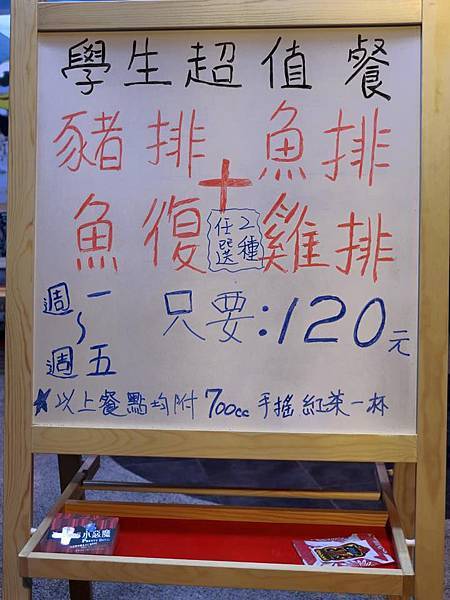 學生超值餐
豬排 + 魚排
魚復 任選2種 雞排
週一~週五 只要:120元
★以上餐點均附700cc手搖紅茶一杯
小惡魔